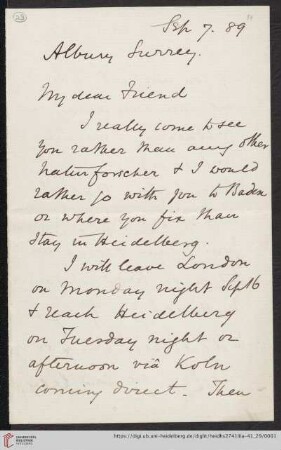 Sep 7. 89
Albury Surrey.
My dear Friend
I really come to see
you rather than any other
naturforscher & I would
rather go with you to Baden
or where you fix than
stay in Heidelberg.
I will leave London
on Monday night Sept 16
& reach Heidelberg
on Tuesday night or
afternoon viâ Koln
coming direct. Then
UNIVERSITÄTS-
BIBLIOTHEK
HEIDELBERG